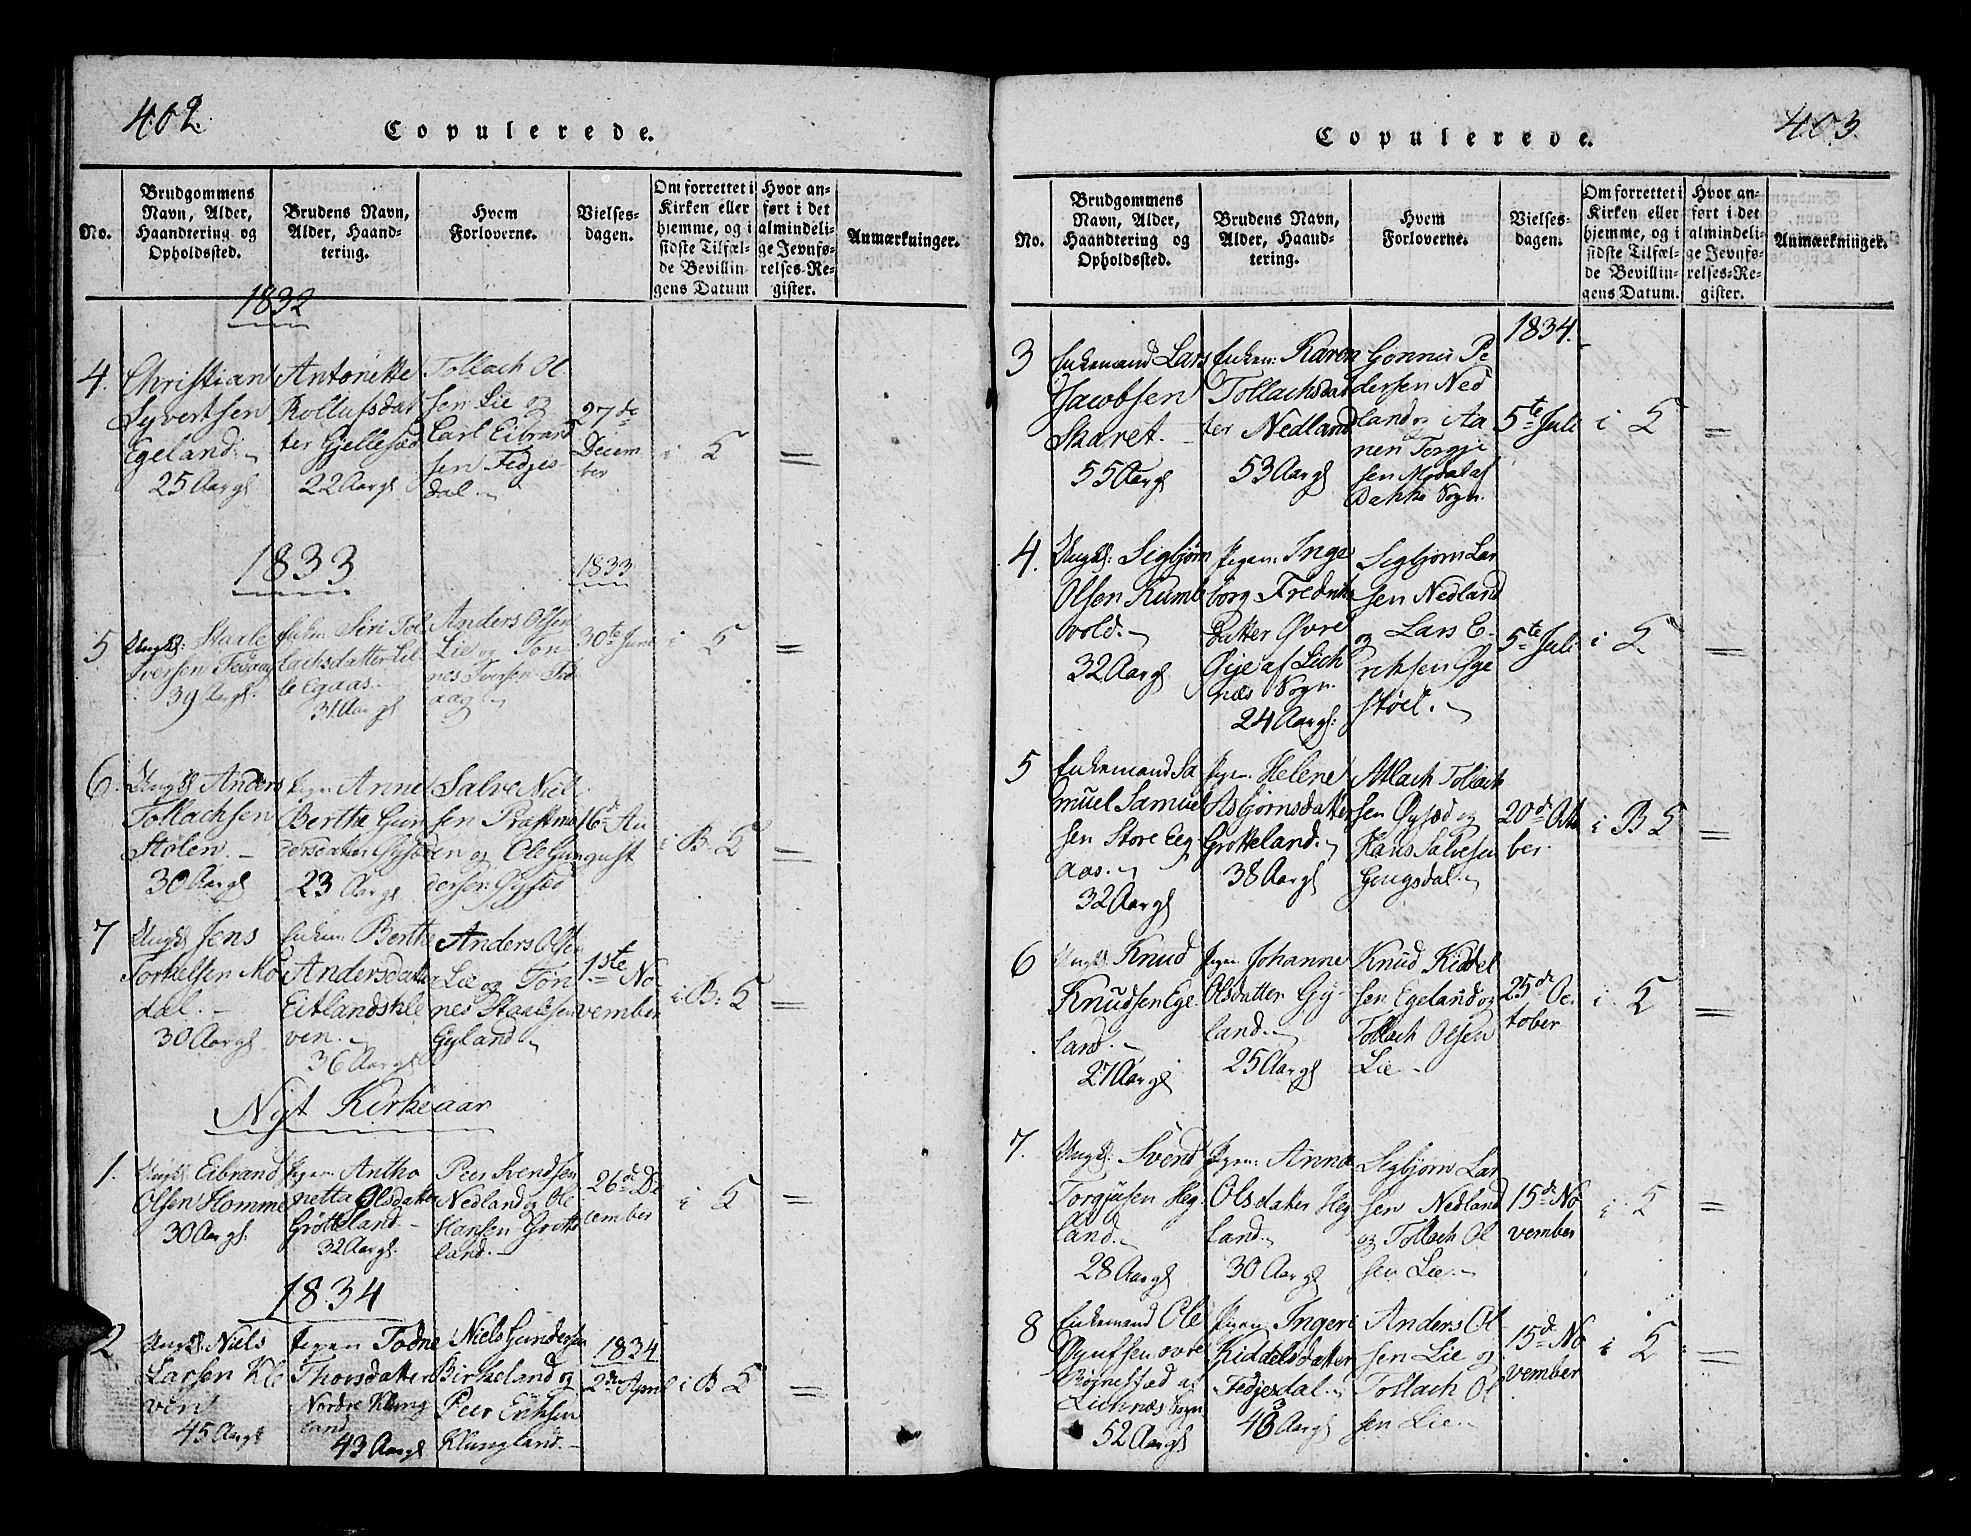 402.
Copulerede.
No.
Brudgommens
Navn, Alder,
Haandtering og
Opholdssted.
Brudens Navn,
Alder, Haand-
tering.
Hvem
Forloverne.
Vielses-
dagen.
Om forrettet i
Kirken eller
hjemme, og i
sidste Tilfæl-
de Bevillin-
gens Datum
Hvor an-
ført i det
almindeli-
ge Jevnfø-
relses-Re-
gister.
Anmærkninger.
1832
4.
Christian
Syvertsen
Egeland.
25 Aar gl
Antonette
Rollufsdat
ter Gjellesad
22 Aar gl
Tollach Ol
sen Lie og
Carl Eibrand
sen Fedjes-
dal.
27de
Decem
ber
i 5 =
1833
1833
5
Ungk: Staale
Iversen
39 Aar gl.
Enken Siri Tol
lachsdatter Lil
le Egaas.
31 Aar gl
Anders Olsen
Lie og Ton
nes Iversen
30te Juni
i 5 =
6.
Ungk Anders
Tollachsen
Stølen.
30 Aar gl
Pigen Anne
Berthe Gun
dersdatter
23 Aar gl
Salve Niel
sen
og Ole Gun
dersen
16de Au
gust
i B. 5 =
7
Ungk Jens
Torkelsen Mo
dal.
30 Aar gl
Enken: Berthe
Andersdatter
Eitlandskle
ven.
36 Aar gl
Anders Olsen
Lie og Ton
nes Staalesen
Gyland
1ste No
vember
i B. 5 =
Nyt Kirkeaar
1.
Ungk: Eibrand
Olsen Homme
30 Aar gl.
Pigen Antho
netta Olsdatter
Grøtteland.
32 Aar gl.
Peer Svendsen
Nedland og Ole
Hansen Grøtte
land.
26de De
cember
i 5 =
1834
2
Ungk: Niels
Larsen Kle
ven
45 Aar gl
Pigen Todne
Thorsdatter
Nordre Klung
land
43 Aar gl
Niels Gundersen
Birkeland og
Peer Eriksen
Klungland.
1834
2den April
i B 5 =
403.
Copulerede.
No.
Brudgommens
Navn, Alder,
Haandtering og
Opholdssted.
Brudens Navn,
Alder, Haand-
tering.
Hvem
Forloverne.
Vielses-
dagen.
Om forrettet i
Kirken eller
hjemme, og i
sidste Tilfæl-
de Bevillin-
gens Datum.
Hvor an-
ført i det
almindeli-
ge Jevnfø-
relses-Re-
gister.
Anmærkninger.
1834.
3
Enkemand Lars
Jacobsen
Skaret.
55 Aar gl
Enken: Karen
Tollachsdat
ter Nedland
53 Aar gl
Gunner Pe
dersen Ned
land og Aa
nen Torgje
sen Modal af
Bakke Sogn.
5te Juli
i 5 =
4.
Ungk: Segbjørn
Olsen Rumle
vold.
32 Aar gl
Pigen: Inge
borg Fredriks
datter Øvre
Øye af Lich
næs Sogn.
24 Aar gl:
Segbjørn Lar
sen Nedland
og Lars E-
riksen Øye
støel.
5te Juli
i 5 =
5
Enkemand Sa
muel Samuel
sen Store Eeg
aas.
32 Aar gl
Pigen: Helene
Asbjørnsdatter
Grøtteland.
38 Aar gl
Atlach Tollach
sen og
Hans Salvesen
Gongsdal.
20de Octo
ber.
i B 5 =
6
Ungk Knud
Knudsen Ege
land.
27 Aar gl
Pigen Johanne
Olsdatter Gy-
land.
25 Aar gl
Knud Kiddel
sen Egeland og
Tollach Olsen
Lie.
25de Oc
tober
i 5 =
7.
Ungk: Svend
Torgjusen Heg
land.
28 Aar gl
Pigen: Anna
Olsdatter Heg
land.
30 Aar gl
Segbjørn Lar
sen Nedland
og Tollach Ol
sen Lie.
15de No
vember
i 5 =
8
Enkemand Ole
Ogufsen øvre
af
Lichnæs Sogn
52 Aar gl
Pigen: Ingeri
Kiddelsdatter
Fedjesdal.
43 Aar gl
Anders Ol
sen Lie og
Tollach Ol
sen Lie.
15de No
vember
i 5 =